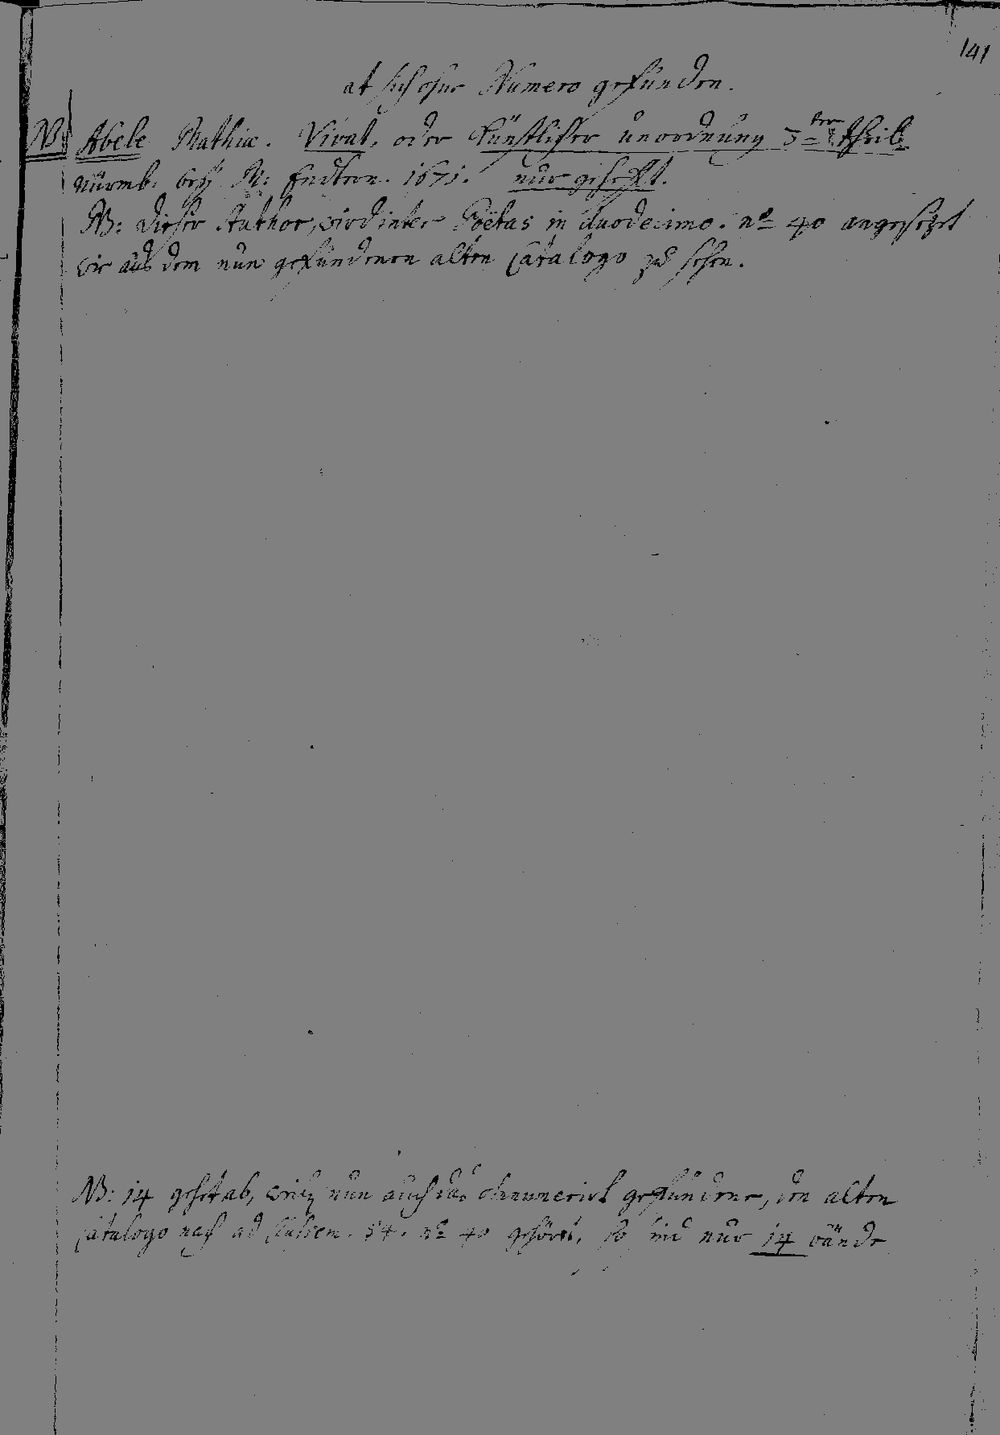 141
at sich ohne Numero gefunden.
N: Abele Mathiæ. Vivat, oder Künstlicher unordnung 5 ter theil.
Nürmb. bey M: Endtern. 1671. nur gehefft.
NB: dieser Author, wird inter Poëtas in duodecimo. n.o 40 angesetzet
wie aus dem nun gefundenen alten Catalogo zu sehen.
NB: 14 geht ab, weilen nun auch das ohnnumerirt gefundene, den alten
Catalogo nach ad 54. n.o 40 gehört, so sind nur 14 bände